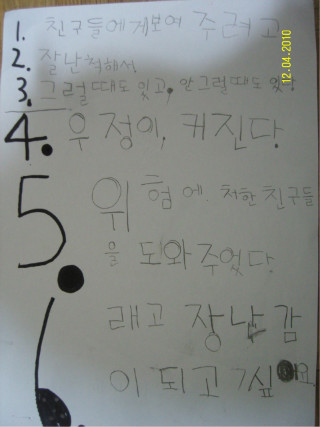 1. 친구들에게보여 주려고
2. 잘난척해서.
3. 그럴때도 있고, 안그럴때도 있다.
4. 우정이, 커진다.
5. 위험에. 처한 친구들
을 도와 주었다.
래고 장난감
이 되고 싶어요.
12.04.2010